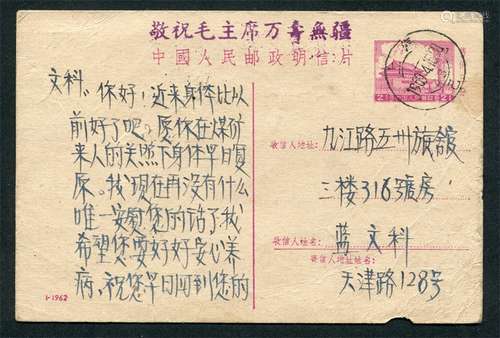 敬祝毛主席万壽無疆
中國人民邮政明信片
文科。你好，近来身体比以
前好了吧。愿你在煤矿
来人的关照下身体早日复
原。我现在再没有什么
唯一安慰您的话了我
希望您要好好安心养
病，祝您早日回到您的
1-1962
收信人地址:
九江路五卅旅舘
三楼316號房
收信人姓名:
蓝文科
寄信人地址姓名:
天津路128号